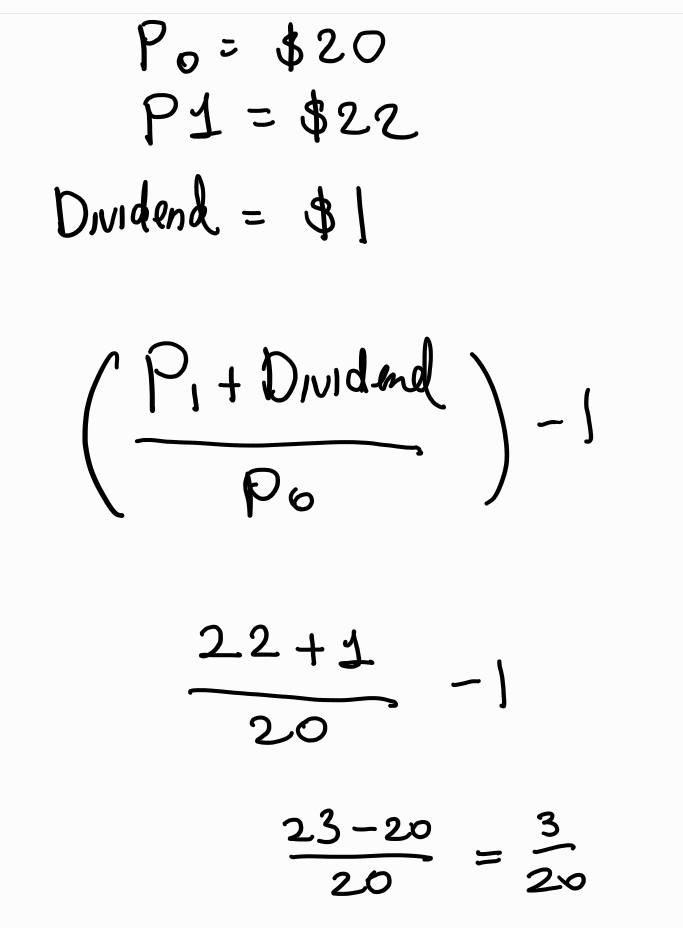 P₀ = $20
P1 = $22
Dividend = $1
(P₁ + Dividend / P₀) - 1
22 + 1 / 20 - 1
23 - 20 / 20 = 3 / 20